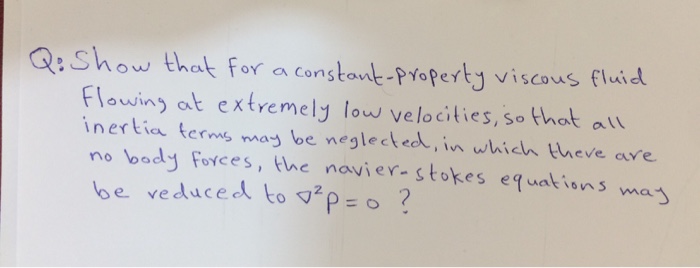 Q: Show that for a constant-property viscous fluid
flowing at extremely low velocities, so that all
inertia terms may be neglected, in which there are
no body forces, the navier-stokes equations may
be reduced to ∇²P = 0 ?